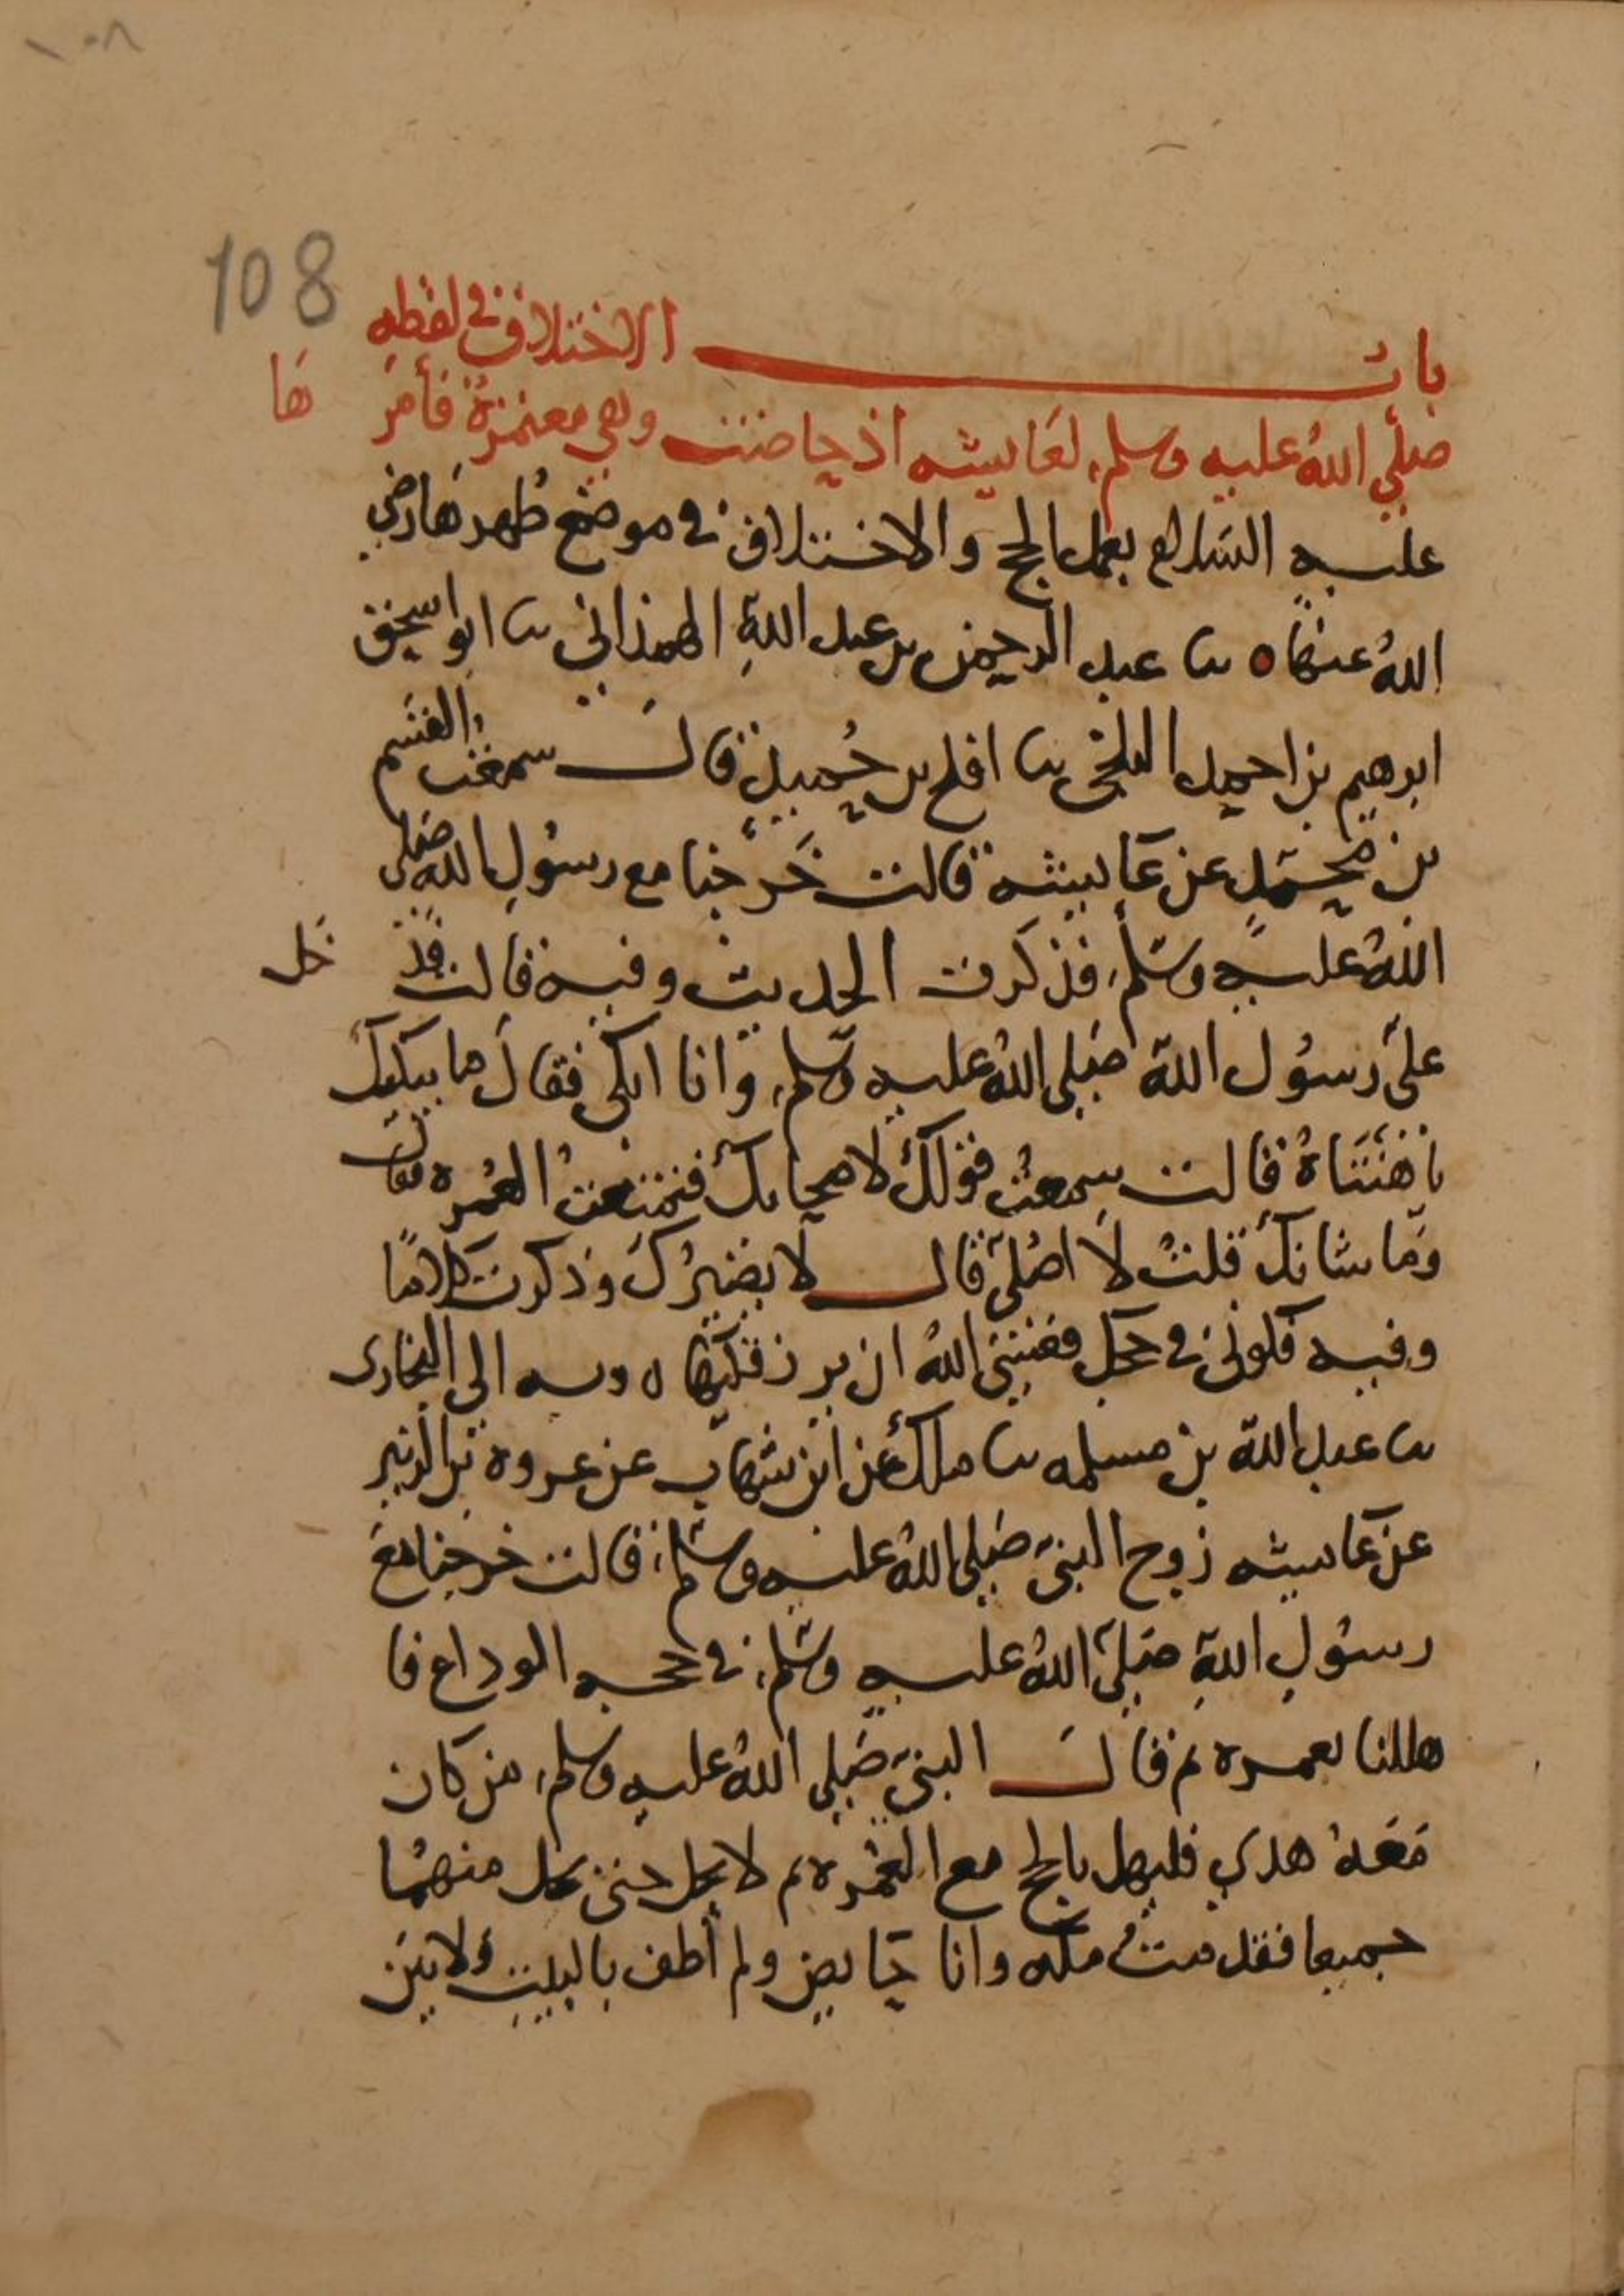 ١٠٨
108
باب الاختلاف في لفظه
صلى الله عليه وسلم لعايشه اذ حاضت وهي معتمرة فأمر ها
عليه السلام بعمل الحج والاختلاف في موضع طهرها رضي
الله عنها ه نا عبد الرحمن بن عبد الله الهمذاني نا ابو اسحق
ابرهيم بن احمد البلخي نا افلح بن حميد قال سمعت القسم
بن محمد عن عايشه قالت خرجنا مع رسول الله صلى
الله عليه وسلم فذكرت الحديث وفيه قالت فد خل
على رسول الله صلى الله عليه وسلم وانا ابكي فقال ما يبكيك
يا هنتاه قالت سمعت قولك لاصحابك فمنعت العمره قال
وما شانك قلت لا اصلي قال لا يضيرك وذكرت كلاما
وفيه فكوني في حجك فعسى الله ان يرزقكيها ه وبه الى البخارى
نا عبد الله بن مسلمه نا ملك عن ابن شهاب عن عروة بن الزبير
عن عايشه زوج النبي صلى الله عليه وسلم قالت خرجنا مع
رسول الله صلى الله عليه وسلم في حجه الوداع فا
هللنا بعمره ثم قال النبي صلى الله عليه وسلم من كان
معه هدي فليهل بالحج مع العمره ثم لا يحل حتى يحل منهما
جميعا فقدمت مكه وانا حايض ولم أطف بالبيت ولا بين